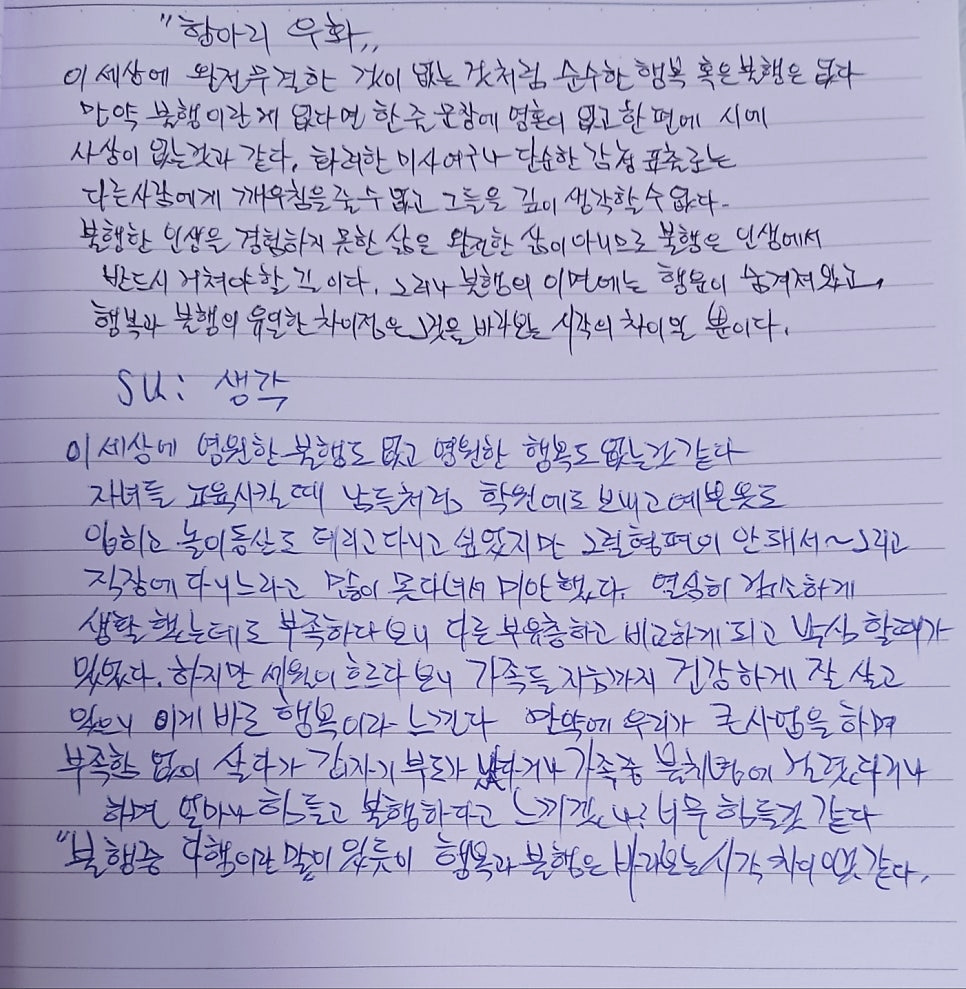 "항아리 우화,,
이 세상에 완전무결한 것이 없는 것처럼 순수한 행복 혹은 불행은 없다
만약 불행이란게 없다면 한 줄 문장에 영혼이 없고 한 편에 시에
사상이 없는것과 같다. 화려한 미사여구나 단순한 감정 표출로는
다른사람에게 깨우침을 줄수 없고 그들을 깊이 생각할 수 없다.
불행한 인생을 경험하지 못한 삶은 완전한 삶이 아니므로 불행은 인생에서
반드시 거쳐야 할 길 이다. 그러나 불행의 이면에는 행운이 숨겨져 있고,
행복과 불행의 유일한 차이점은 그것을 바라보는 시각의 차이일 뿐이다.
SU: 생각
이 세상에 영원한 불행도 없고 영원한 행복도 없는것 같다
자녀들 교육시킬 때 남들처럼 학원에도 보내고 예쁜옷도
입히고 놀이동산도 데리고 다니고 싶었지만 그럴형편이 안돼서~그리고
직장에 다니느라고 많이 못다녀서 미안했다. 열심히 검소하게
생활 했는데도 부족하다 보니 다른 부유층하고 비교하게 되고 낙심 할때가
있었다. 하지만 세월이 흐르다 보니 가족들 지금까지 건강하게 잘 살고
있으니 이게 바로 행복이라 느낀다 만약에 우리가 큰사업을 하며
부족함 없이 살다가 갑자기 부도가 났다거나 가족중 불치병에 걸렸다거나
하면 얼마나 힘들고 불행하다고 느끼겠나? 너무 힘들것 같다
"불행중 다행이란 말이 있듯이 행복과 불행은 바라보는 시각 차이 인것 같다.